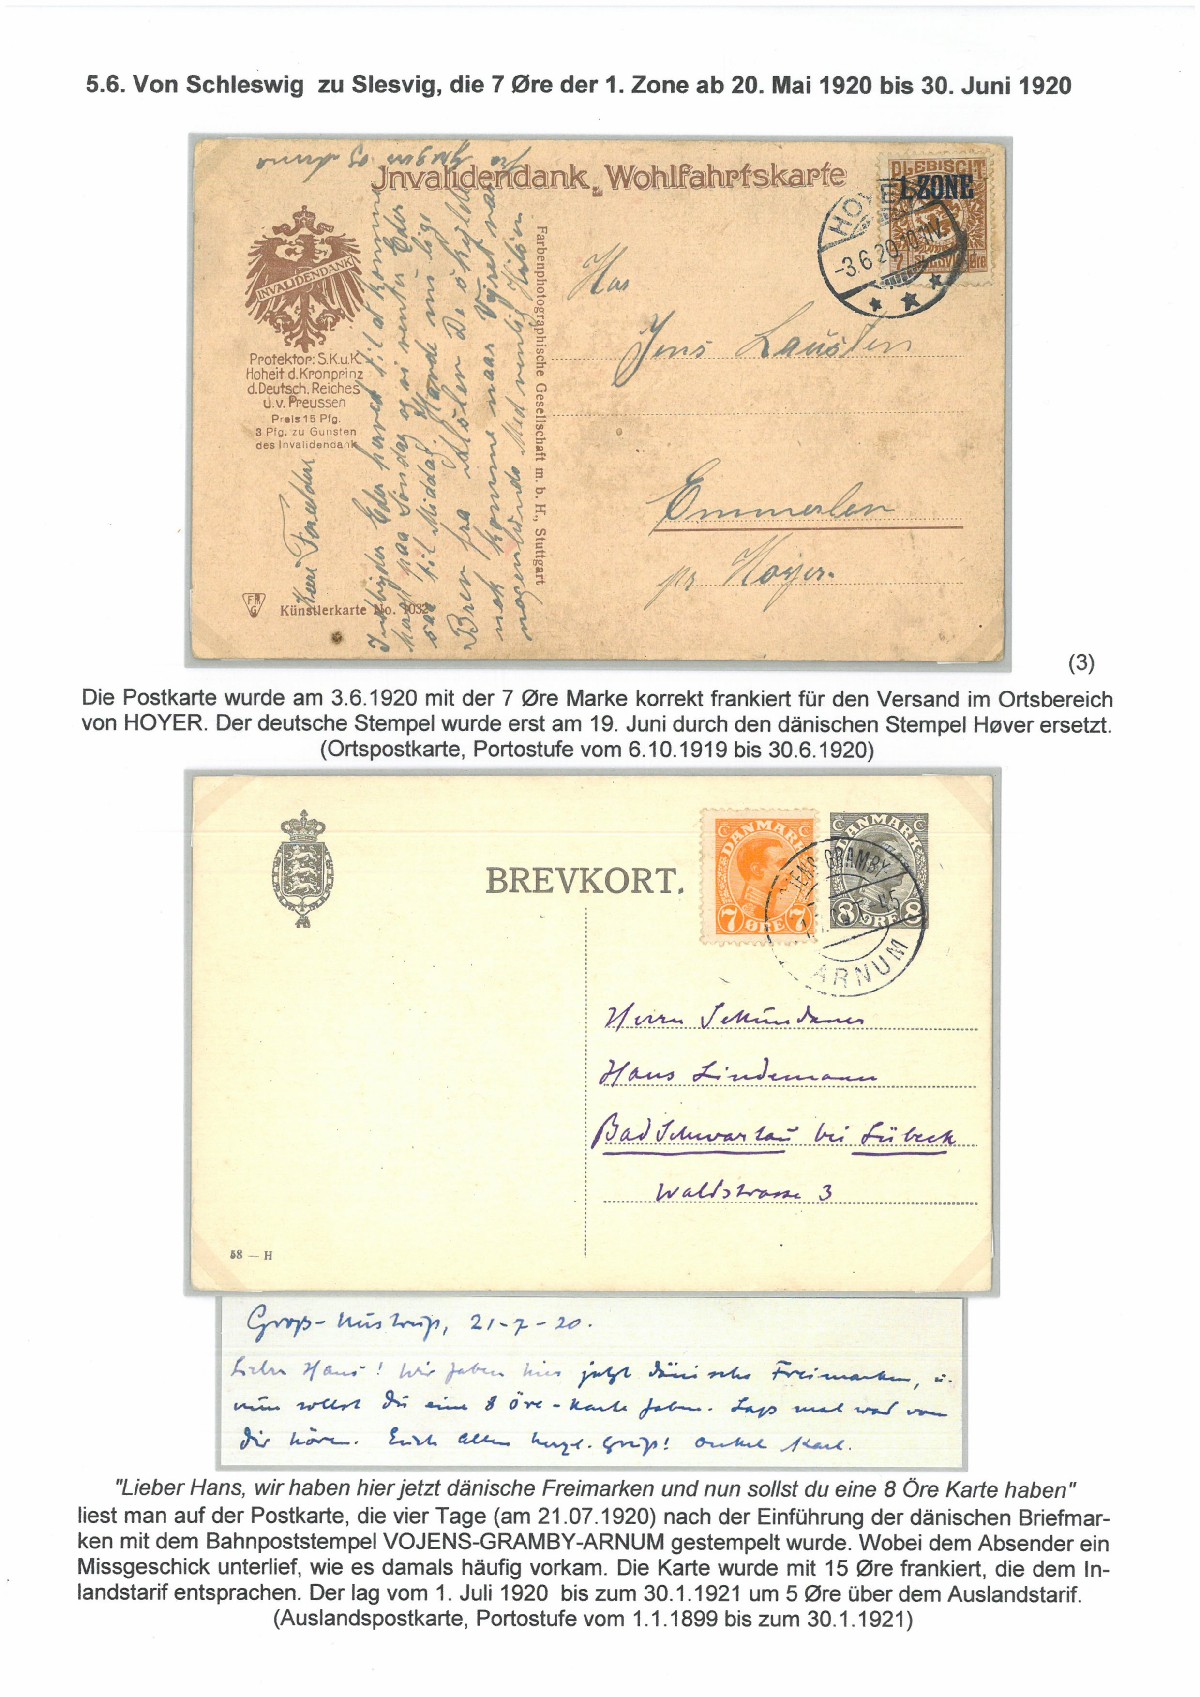 5.6. Von Schleswig zu Slesvig, die 7 Øre der 1. Zone ab 20. Mai 1920 bis 30. Juni 1920
Invalidendank. Wohlfahrtskarte
PLEBISCIT
1. ZONE
7 SLESVIG Øre
HOYER
-3.6.20.
INVALIDENDANK
Protektor: S.K.u.K.
Hoheit d. Kronprinz
d. Deutsch. Reiches
u.v. Preussen
Preis 15 Pfg.
3 Pfg. zu Gunsten
des Invalidendank
Künstlerkarte No. 1032
Farbenphotographische Gesellschaft m. b. H., Stuttgart
Jens Lausten
Emmerlev
pr. Hoyer.
(3)
Die Postkarte wurde am 3.6.1920 mit der 7 Øre Marke korrekt frankiert für den Versand im Ortsbereich
von HOYER. Der deutsche Stempel wurde erst am 19. Juni durch den dänischen Stempel Høver ersetzt.
(Ortspostkarte, Portostufe vom 6.10.1919 bis 30.6.1920)
BREVKORT.
DANMARK
7 ØRE 7
DANMARK
8 ØRE 8
JENS-GRAMBY
ARNUM
Herrn Sekundaner
Hans Lindemann
Bad Schwartau bei Lübeck
Waldstrasse 3
58 — H
Groß-Nustrup, 21-7-20.
Lieber Hans! Wir haben hier jetzt dänische Freimarken, u.
nun sollst du eine 8 Öre-Karte haben. Lass mal was von
Dir hören. Euch allen herzl. Gruß! Onkel Karl.
"Lieber Hans, wir haben hier jetzt dänische Freimarken und nun sollst du eine 8 Öre Karte haben"
liest man auf der Postkarte, die vier Tage (am 21.07.1920) nach der Einführung der dänischen Briefmar-
ken mit dem Bahnpoststempel VOJENS-GRAMBY-ARNUM gestempelt wurde. Wobei dem Absender ein
Missgeschick unterlief, wie es damals häufig vorkam. Die Karte wurde mit 15 Øre frankiert, die dem In-
landstarif entsprachen. Der lag vom 1. Juli 1920 bis zum 30.1.1921 um 5 Øre über dem Auslandstarif.
(Auslandspostkarte, Portostufe vom 1.1.1899 bis zum 30.1.1921)